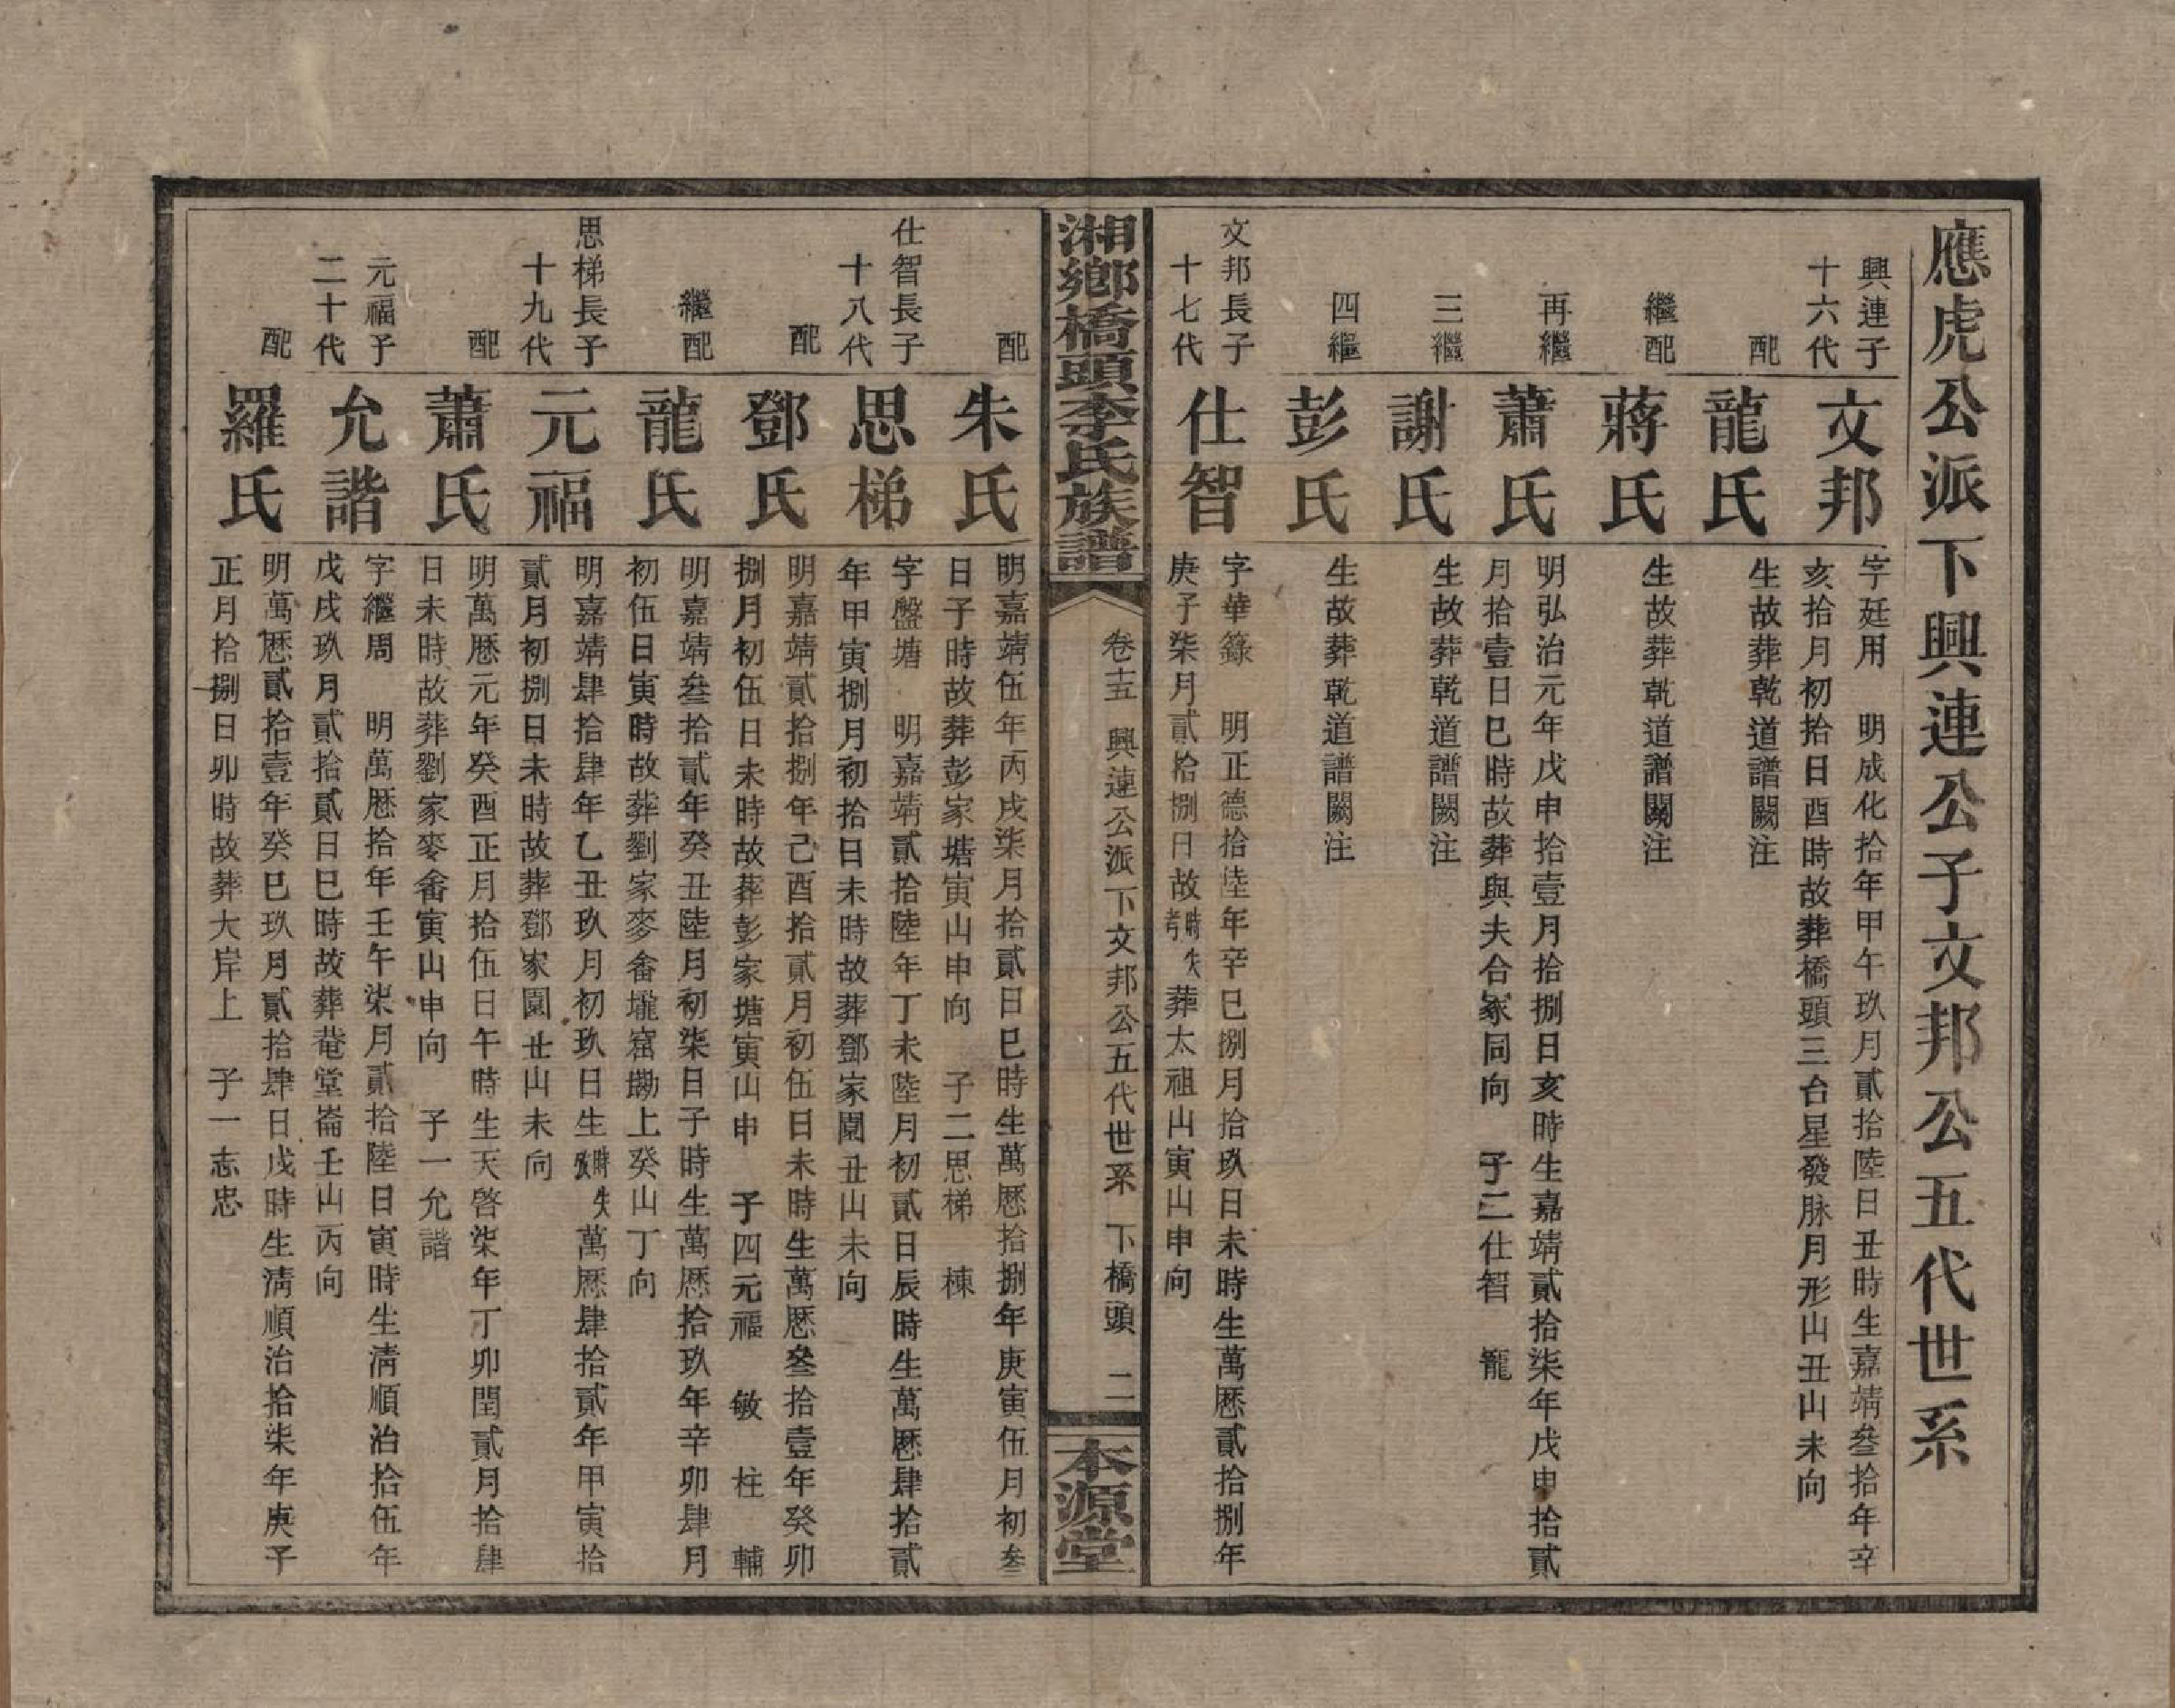 應虎公派下興連公子文邦公五代世系
興連子
十六代
文邦
字廷用 明成化拾年甲午玖月貳拾陸日丑時生嘉靖叁拾年辛
亥拾月初拾日酉時故葬橋頭三台星發脉月形山丑山未向
配
龍氏
生故葬乾道譜闕注
繼配
蔣氏
生故葬乾道譜闕注
再繼
蕭氏
明弘治元年戊申拾壹月拾捌日亥時生嘉靖貳拾柒年戊申拾貳
月拾壹日巳時故葬與夫合冢同向 子二仕智 寵
三繼
謝氏
生故葬乾道譜闕注
四繼
彭氏
生故葬乾道譜闕注
文邦長子
十七代
仕智
字華籙 明正德拾陸年辛巳捌月拾玖日未時生萬歷貳拾捌年
庚子柒月貳拾捌日故時失考葬太祖山寅山申向
湘鄉橋頭李氏族譜
卷十五 興連公派下文邦公五代世系 下橋頭 二
本源堂
配
朱氏
明嘉靖伍年丙戌柒月拾貳日巳時生萬歷拾捌年庚寅伍月初叁
日子時故葬彭家塘寅山申向 子二思梯 棟
仕智長子
十八代
思梯
字盤塘 明嘉靖貳拾陸年丁未陸月初貳日辰時生萬歷肆拾貳
年甲寅捌月初拾日未時故葬鄧家園丑山未向
配
鄧氏
明嘉靖貳拾捌年己酉拾貳月初伍日未時生萬歷叁拾壹年癸卯
捌月初伍日未時故葬彭家塘寅山申 子四元福 敏 柱 輔
繼配
龍氏
明嘉靖叁拾貳年癸丑陸月初柒日子時生萬歷拾玖年辛卯肆月
初伍日寅時故葬劉家麥畬壠窩墈上癸山丁向
思梯長子
十九代
元福
明嘉靖肆拾肆年乙丑玖月初玖日生時失攷萬歷肆拾貳年甲寅拾
貳月初捌日未時故葬鄧家園丑山未向
配
蕭氏
明萬歷元年癸酉正月拾伍日午時生天啓柒年丁卯閏貳月拾肆
日未時故葬劉家麥畬寅山申向 子一允諧
元福子
二十代
允諧
字繼周 明萬歷拾年壬午柒月貳拾陸日寅時生淸順治拾伍年
戊戌玖月貳拾貳日巳時故葬菴堂崙壬山丙向
配
羅氏
明萬歷貳拾壹年癸巳玖月貳拾肆日戌時生淸順治拾柒年庚子
正月拾捌日卯時故葬大岸上 子一志忠